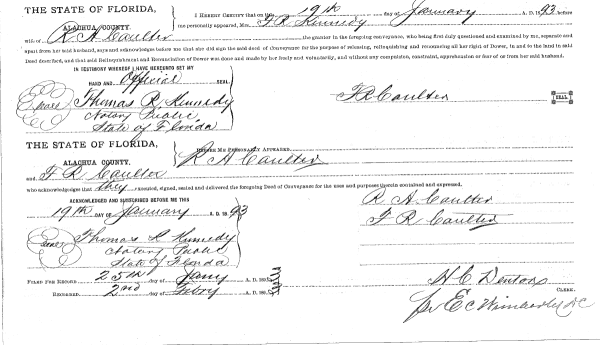 THE STATE OF FLORIDA,
ALACHUA COUNTY.
I HEREBY CERTIFY that on this 19th day of January A. D. 93 before
me personally appeared, Mrs. F R Kennedy
wife of R A Coulter the grantor in the foregoing conveyance, who being first duly questioned and examined by me, separate and
apart from her said husband, says and acknowledges before me that she did sign the said deed of conveyance for the purpose of releasing, relinquishing and renouncing all her right of Dower, in and to the land in said
Deed described, and that said Relinquishment and Renunciation of Dower was done and made by her freely and voluntarily, and without any compulsion, constraint, apprehension or fear of or from her said husband.
IN TESTIMONY WHEREOF I HAVE HEREUNTO SET MY
HAND AND Official SEAL
Seal Thomas R. Kennedy
Notary Public,
State of Florida
F R Coulter SEAL
THE STATE OF FLORIDA,
ALACHUA COUNTY.
BEFORE ME PERSONALLY APPEARED R A Coulter
and F R Coulter
who acknowledges that they executed, signed, sealed and delivered the foregoing Deed of Conveyance for the uses and purposes therein contained and expressed.
ACKNOWLEDGED AND SUBSCRIBED BEFORE ME THIS
19th DAY OF January A. D. 1893
Seal Thomas R Kennedy
Notary Public
State of Florida
R A Coulter
F R Coulter
FILED FOR RECORD 25th day of Jany A. D. 189
RECORDED 2nd day of Febry A. D. 189
H C Denton CLERK.
per E C Wimberly DC